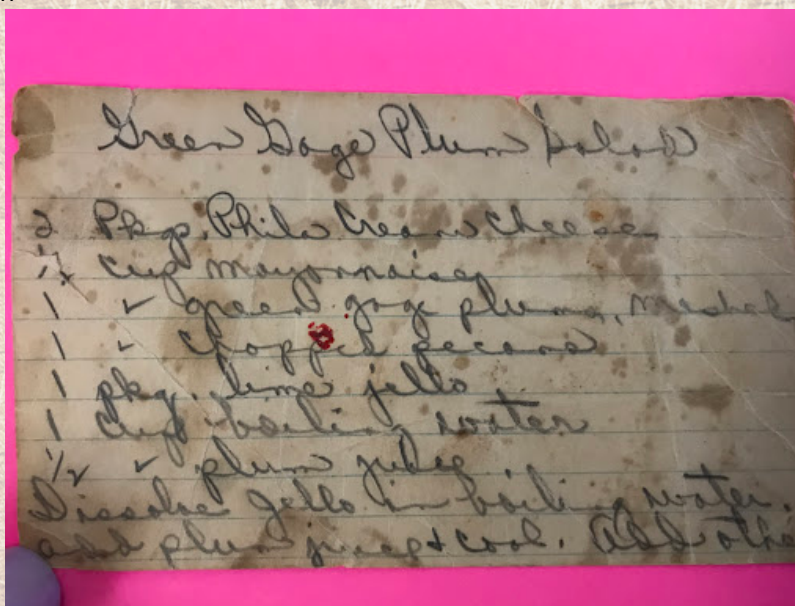 Green Gage Plum Salad
2 Pkgs. Phila Cream Cheese
1/2 cup mayonnaise
1 " green gage plums, mashed
1 " chopped pecans
1 pkg. lime jello
1 cup boiling water
1/2 " plum juice
Dissolve jello in boiling water,
add plum juice & cool. Add othe